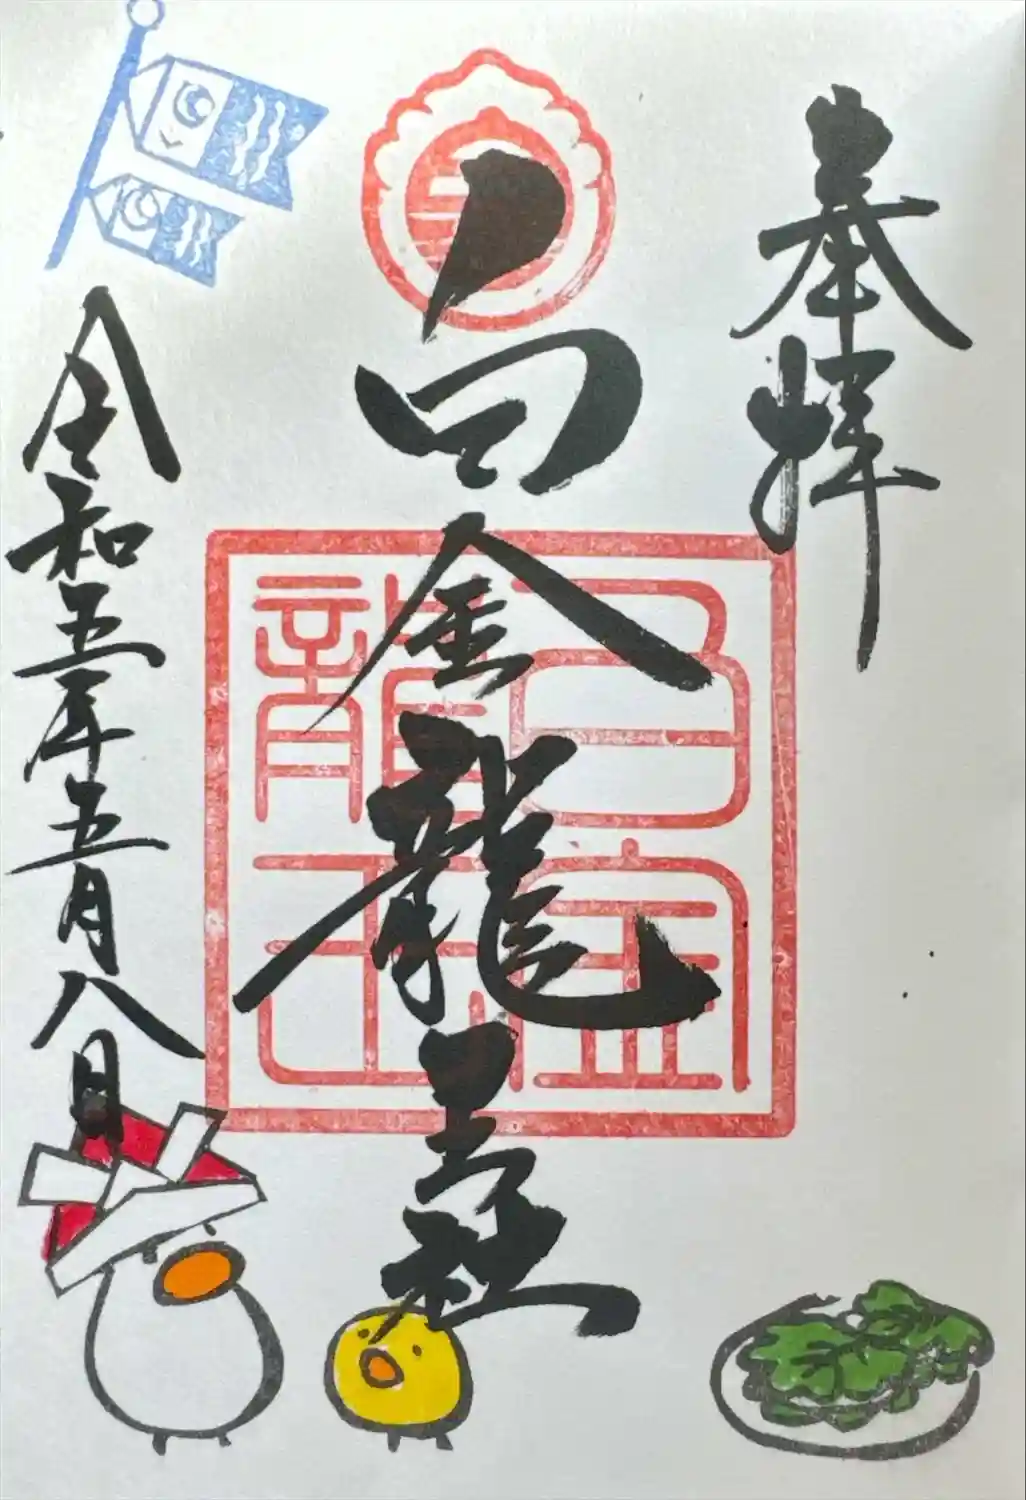 奉拝
白金龍王社
令和五年五月八日
白金
龍王